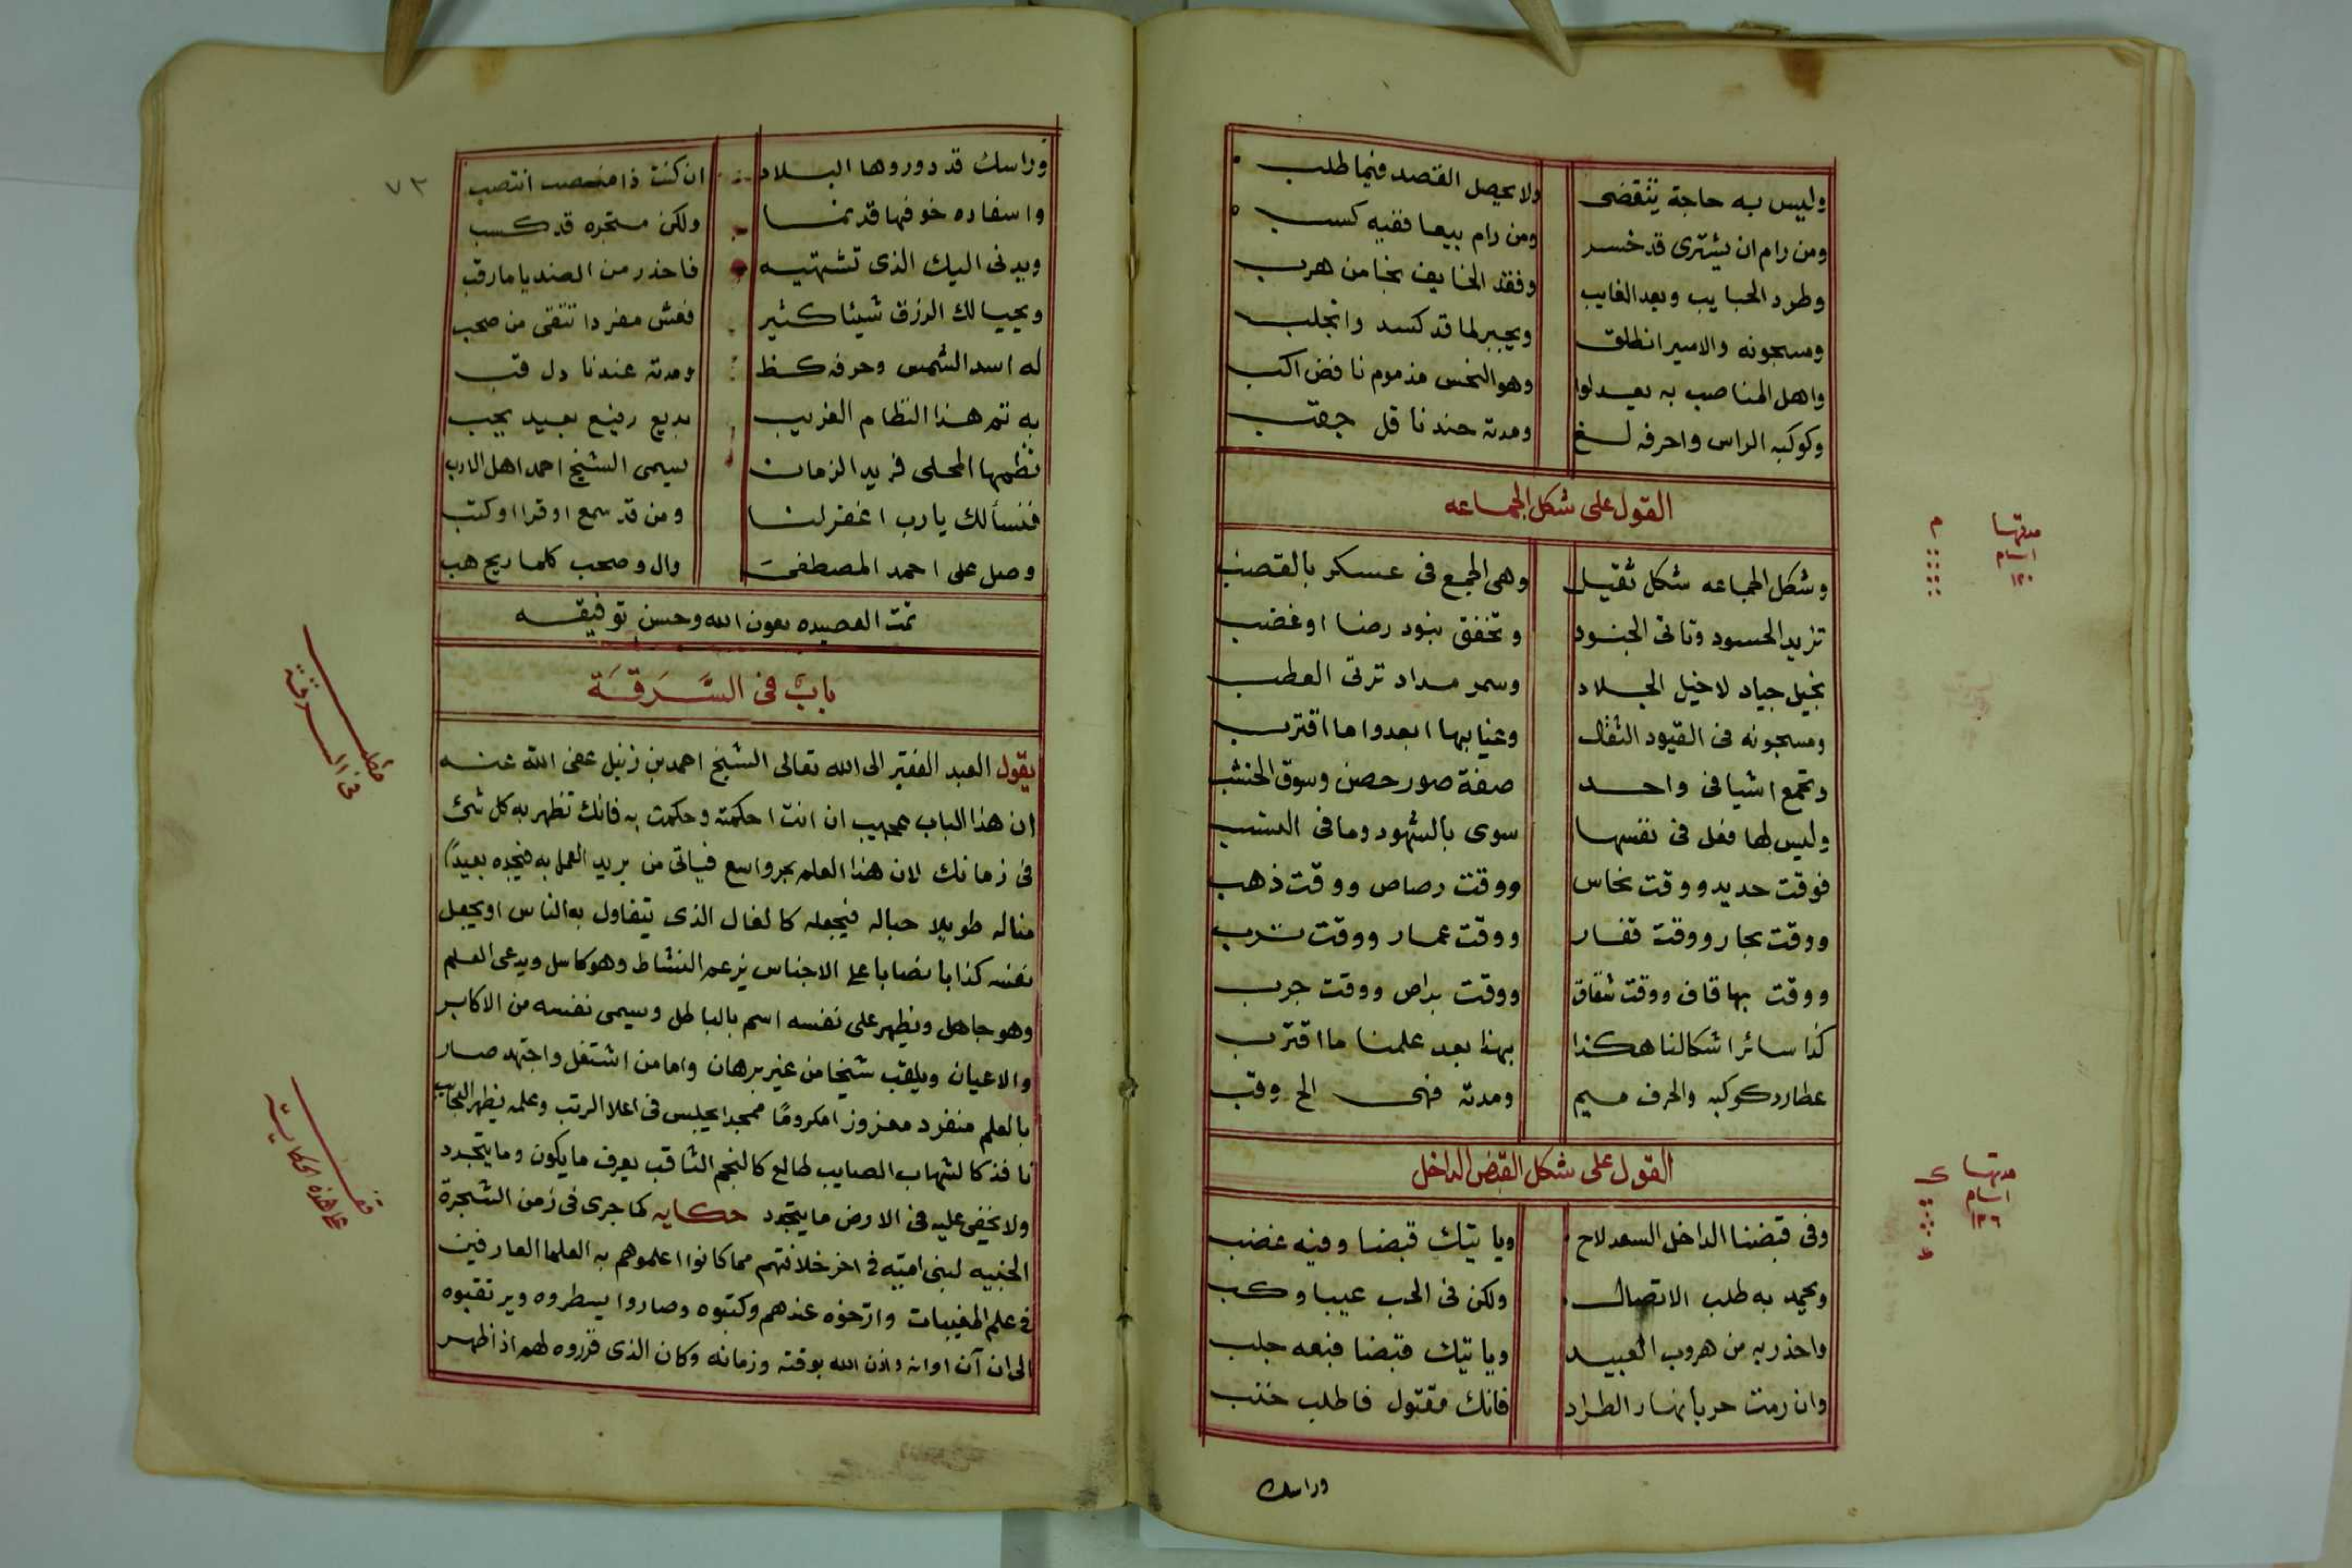 وليس به حاجة يتقضى ولا يحصل القصد فيما طلب
ومن رام ان يشترى قد خسر ومن رام بيعا ففيه كسب
وطرد الحبايب وبعد الغايب وفقد الخايف نجا من هرب
ومسجونه والامير انطلق ويجبر لما قد كسد وانجلب
واهل المناصب به يعدلوا وهو النحس مذموم نافض اكب
وكوكبه الراس واحرفه لسغ ومدته عندنا قل جعتب
القول على شكل الجماعه
وشكل الجماعه شكل ثقيل وهى الجمع فى عسكر بالقضب
تزيد الحسود وتاتى الجنود وتخفق بنود رضا او غضب
بخيل جياد لاخيل الجلاد وسمر مداد ترتى العطب
ومسجونه فى القيود الثقال وغيابها ابعدوا ما اقترب
وتجمع اشيا فى واحد صفة صور حصن وسوق الخشب
وليس لها فعل فى نفسها سوى بالشهود وما فى النسب
فوقت حديد ووقت نحاس ووقت رصاص ووقت ذهب
ووقت بحار ووقت قفار ووقت عمار ووقت ترب
ووقت بها قاف ووقت شقاق ووقت براص ووقت جرب
كذا سائر اشكالنا هكذا بهذا بعد علمنا ما اقترب
عطارد كوكبه والحرف ميم ومدته فهى الح وقب
مدتها
ايام
١٢٠
م
القول على شكل القبض الداخل
وفى قبضنا الداخل السعد لاح وياتيك قبضا وفيه غضب
ويحمد به طلب الاتصال ولكن فى الحرب عيبا وكب
واحذر به من هروب العبيد وياتيك قبضا فبعه جلب
وان رمت حربا نهار الطراد فانك مقتول فاطلب خنب
مدتها
ايام
١٢٦
وراسك
٧٢
وراسك قد دوروها البلاد ان كنت ذا منصب انتصب
واسفاره خوفها قد نما ولكن متجره قد كسب
ويدنى اليك الذى تشتهيه فاحذر من الضد يا مارقب
ويحيا لك الرزق شيئا كثير فعش مفردا تتقى من صحب
له اسد الشمس وحرفه كظ ومدته عندنا دل قب
به تم هذا النظام الغريب بديع رفيع بعيد يجب
نظمها المحلى فريد الزمان يسمى الشيخ احمد اهل الادب
فنسألك يارب اغفر لنا ومن قد سمع او قرا او كتب
وصل على احمد المصطفى وال وصحب كلما ريح هب
تمت القصيده بعون الله وحسن توفيقه
باب فى السَّرَقَة
يقول العبد الفقير الى الله تعالى الشيخ احمد بن زنبل عفى الله عنه
ان هذا الباب عجيب ان انت احكمته وحكمت به فانك تظهر به كل شئ
فى زمانك لان هذا العلم بحر واسع فياتى من يريد العمل به فيجده بعيدًا
مناله طويلا حباله فيجعله كالفال الذى يتفاول به الناس او يجعل
نفسه كذابا نصابا على الاجناس يزعم النشاط وهو كاسل ويدعى العلم
وهو جاهل ويظهر على نفسه اسم بالباطل ويسمى نفسه من الاكابر
والاعيان ويلقب شيخا من غير برهان واما من اشتغل واجتهد صار
بالعلم منفرد معزوزا مكرومًا ممجدا يجلس فى اعلا الرتب وعلمه يظهر العجايب
نافذ كالشهاب الصايب طالع كالنجم الثاقب يعرف ما يكون وما يتجدد
ولا يخفى عليه فى الارض ما يتجدد حكايه كما جرى فى زمن الشجرة
الجنيه لبنى اميه فى اخر خلافتهم مما كانوا اعلموهم به العلما العارفين
فى علم المغيبات وارخوه عندهم وكتبوه وصاروا يسطروه ويرتقبوه
الى ان آن اوانه واذن الله بوقته وزمانه وكان الذى قرروه لهم اذا ظهر
مطلب
فى السرقة
قف
على هذه الحكايه